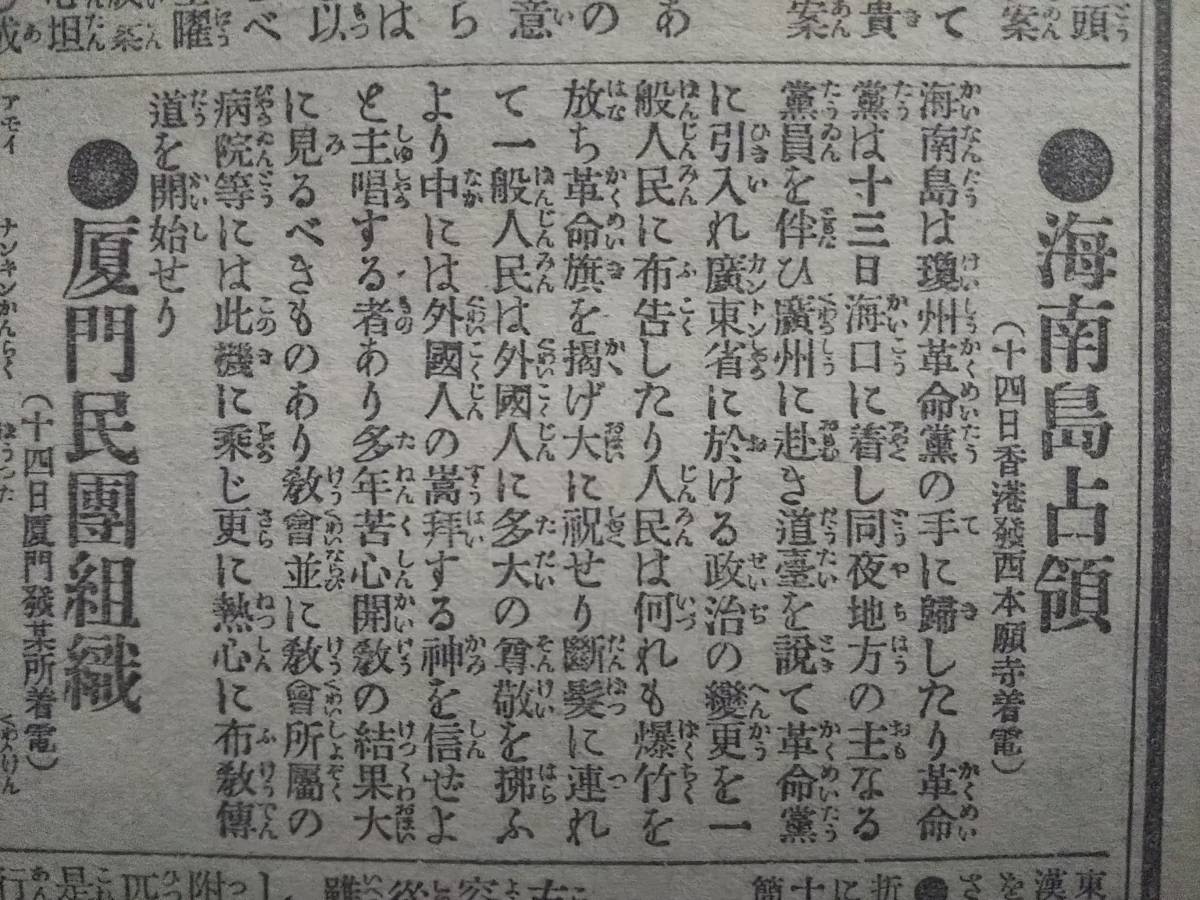 ●海南島占領
(十四日香港發西本願寺着電)
海南島は瓊州革命黨の手に歸したり革命
黨は十三日海口に着し同夜地方の主なる
黨員を伴ひ廣州に赴き道臺を說て革命黨
に引入れ廣東省に於ける政治の變更を一
般人民に布告したり人民は何れも爆竹を
放ち革命旗を揭げ大に祝せり斷髮に連れ
て一般人民は外國人に多大の尊敬を拂ふ
より中には外國人の嵩拜する神を信ぜよ
と主唱する者あり多年苦心開敎の結果大
に見るべきものあり敎會並に敎會所屬の
病院等には此機に乘じ更に熱心に布敎傳
道を開始せり
●厦門民團組織
(十四日厦門發某所着電)